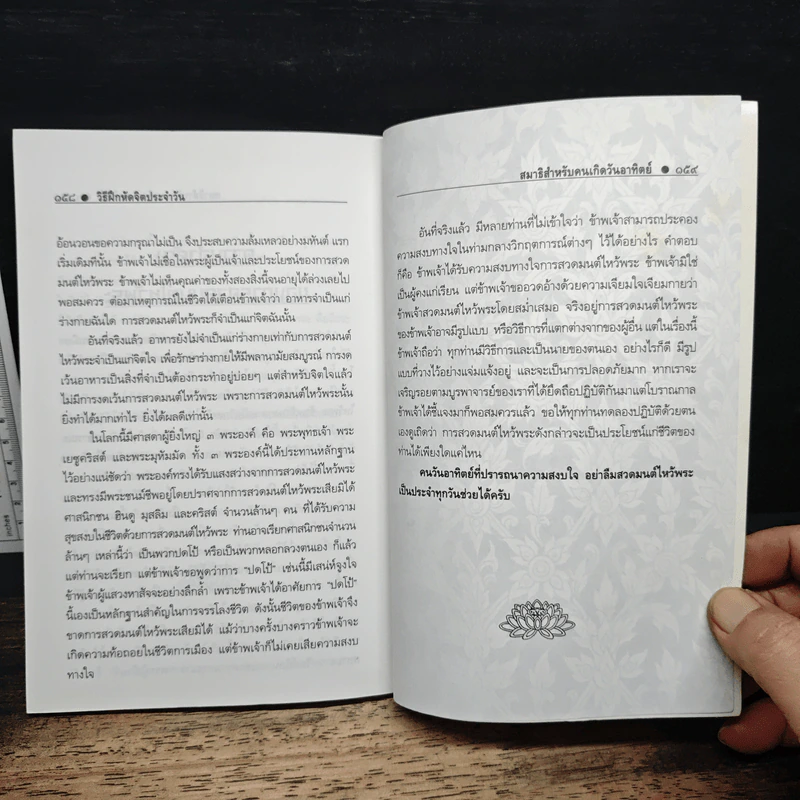 ๑๕๘ ● วิธีฝึกหัดจิตประจำวัน
อ้อนวอนขอความกรุณาไม่เป็น จึงประสบความล้มเหลวอย่างมหันต์ แรก
เริ่มเดิมทีนั้น ข้าพเจ้าไม่เชื่อในพระผู้เป็นเจ้าและประโยชน์ของการสวด
มนต์ไหว้พระ ข้าพเจ้าไม่เห็นคุณค่าของทั้งสองสิ่งนี้จนอายุได้ล่วงเลยไป
พอสมควร ต่อมาเหตุการณ์ในชีวิตได้เตือนข้าพเจ้าว่า อาหารจำเป็นแก่
ร่างกายฉันใด การสวดมนต์ไหว้พระก็จำเป็นแก่จิตฉันนั้น
อันที่จริงแล้ว อาหารยังไม่จำเป็นแก่ร่างกายเท่ากับการสวดมนต์
ไหว้พระจำเป็นแก่จิตใจ เพื่อรักษาร่างกายให้มีพลานามัยสมบูรณ์ การงด
เว้นอาหารเป็นสิ่งที่จำเป็นต้องกระทำอยู่บ่อยๆ แต่สำหรับจิตใจแล้ว
ไม่มีการงดเว้นการสวดมนต์ไหว้พระ เพราะการสวดมนต์ไหว้พระนั้น
ยิ่งทำได้มากเท่าไร ยิ่งได้ผลดีเท่านั้น
ในโลกนี้มีศาสดาผู้ยิ่งใหญ่ ๓ พระองค์ คือ พระพุทธเจ้า พระ
เยซูคริสต์ และพระมุหัมมัด ทั้ง ๓ พระองค์นี้ได้ประทานหลักฐาน
ไว้อย่างแน่ชัดว่า พระองค์ทรงได้รับแสงสว่างจากการสวดมนต์ไหว้พระ
และทรงมีพระชนม์ชีพอยู่โดยปราศจากการสวดมนต์ไหว้พระเสียมิได้
ศาสนิกชน ฮินดู มุสลิม และคริสต์ จำนวนล้านๆ คน ที่ได้รับความ
สุขสงบในชีวิตด้วยการสวดมนต์ไหว้พระ ท่านอาจเรียกศาสนิกชนจำนวน
ล้านๆ เหล่านี้ว่า เป็นพวกปดโป้ หรือเป็นพวกหลอกลวงตนเอง ก็แล้ว
แต่ท่านจะเรียก แต่ข้าพเจ้าขอพูดว่าการ "ปดโป้" เช่นนี้มีเสน่ห์จูงใจ
ข้าพเจ้าผู้แสวงหาสัจจะอย่างลึกล้ำ เพราะข้าพเจ้าได้อาศัยการ "ปดโป้"
นี้เองเป็นหลักฐานสำคัญในการจรรโลงชีวิต ดังนั้นชีวิตของข้าพเจ้าจึง
ขาดการสวดมนต์ไหว้พระเสียมิได้ แม้ว่าบางครั้งบางคราวข้าพเจ้าจะ
เกิดความท้อถอยในชีวิตการเมือง แต่ข้าพเจ้าก็ไม่เคยเสียความสงบ
ทางใจ
สมาธิสำหรับคนเกิดวันอาทิตย์ ● ๑๕๙
อันที่จริงแล้ว มีหลายท่านที่ไม่เข้าใจว่า ข้าพเจ้าสามารถประคอง
ความสงบทางใจในท่ามกลางวิกฤตการณ์ต่างๆ ไว้ได้อย่างไร คำตอบ
ก็คือ ข้าพเจ้าได้รับความสงบทางใจการสวดมนต์ไหว้พระ ข้าพเจ้ามิใช่
เป็นผู้คงแก่เรียน แต่ข้าพเจ้าขออวดอ้างด้วยความเจียมใจเจียมกายว่า
ข้าพเจ้าสวดมนต์ไหว้พระโดยสม่ำเสมอ จริงอยู่การสวดมนต์ไหว้พระ
ของข้าพเจ้าอาจมีรูปแบบ หรือวิธีการที่แตกต่างจากของผู้อื่น แต่ในเรื่องนี้
ข้าพเจ้าถือว่า ทุกท่านมีวิธีการและเป็นนายของตนเอง อย่างไรก็ดี มีรูป
แบบที่วางไว้อย่างแจ่มแจ้งอยู่ และจะเป็นการปลอดภัยมาก หากเราจะ
เจริญรอยตามบูรพาจารย์ของเราที่ได้ยึดถือปฏิบัติกันมาแต่โบราณกาล
ข้าพเจ้าได้ชี้แจงมาก็พอสมควรแล้ว ขอให้ทุกท่านทดลองปฏิบัติด้วยตน
เองดูเถิดว่า การสวดมนต์ไหว้พระดังกล่าวจะเป็นประโยชน์แก่ชีวิตของ
ท่านได้เพียงใดแค่ไหน
คนวันอาทิตย์ที่ปรารถนาความสงบใจ อย่าลืมสวดมนต์ไหว้พระ
เป็นประจำทุกวันช่วยได้ครับ
inches